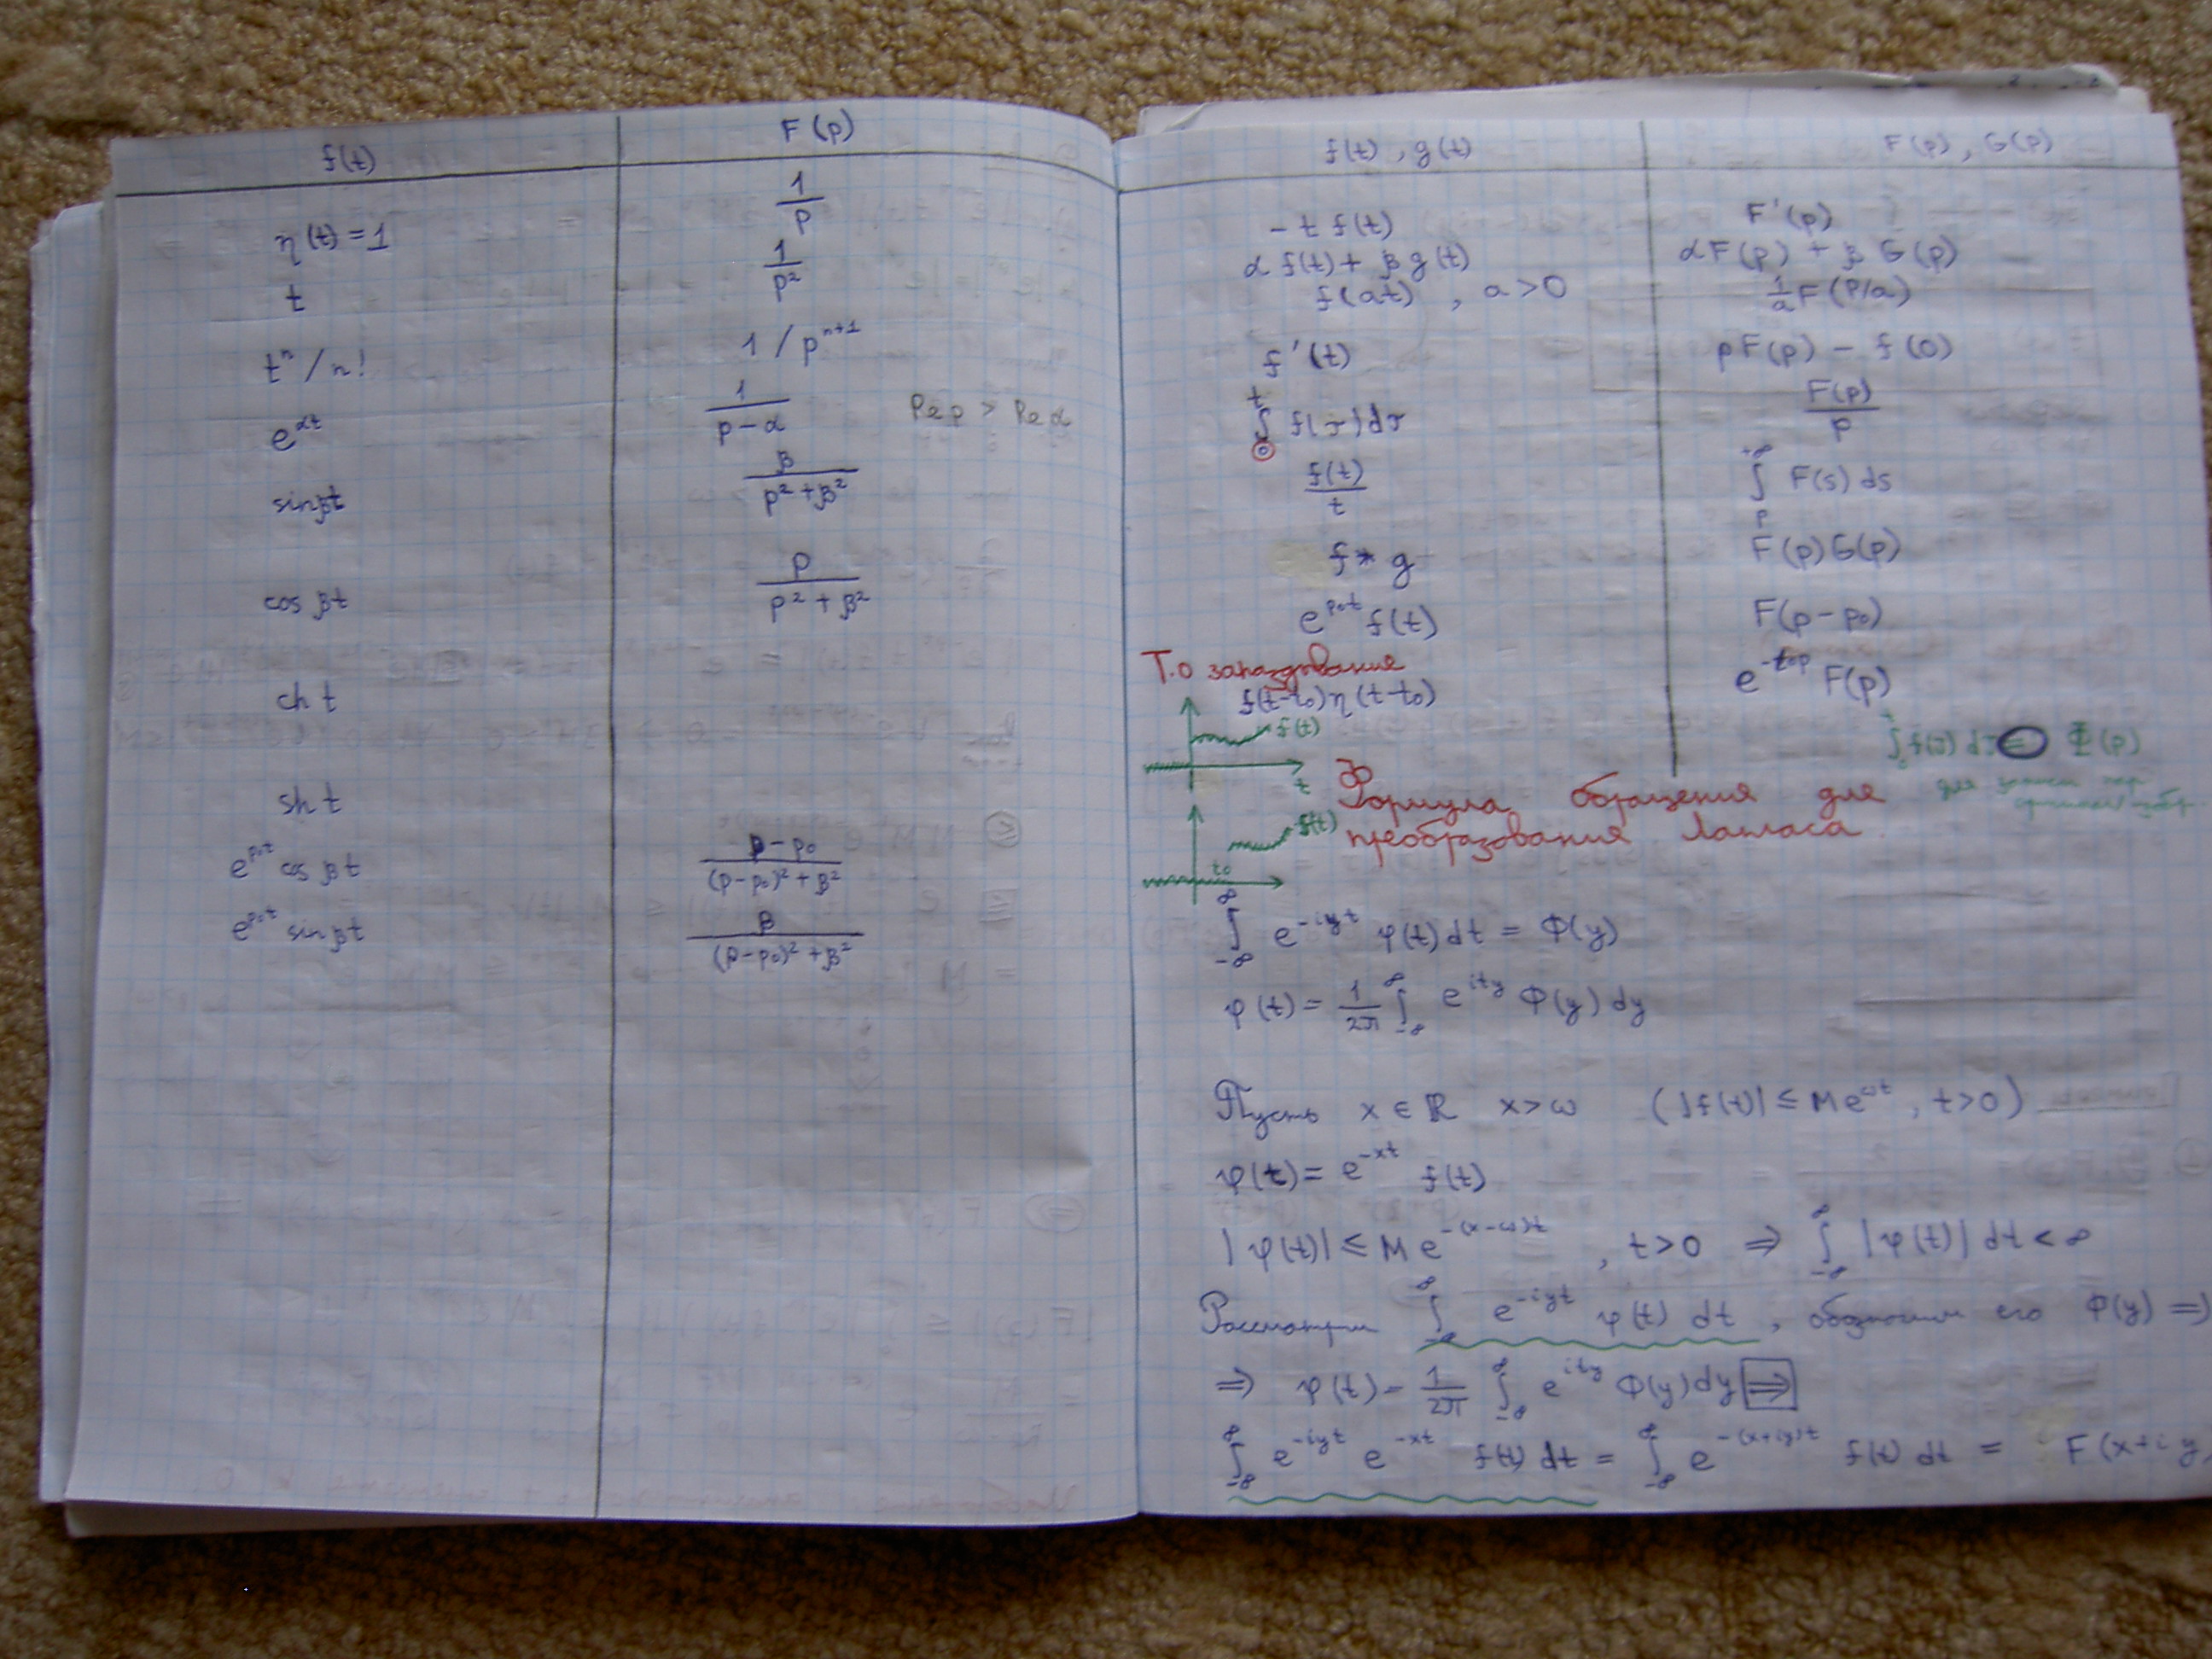 f(t) F(p)
η(t) = 1 1/p
t 1/p²
tⁿ/n! 1/pⁿ⁺¹
e^{αt} 1/(p-α) Re p > Re α
sin βt β/(p²+β²)
cos βt p/(p²+β²)
ch t
sh t
e^{p₀t} cos βt (p-p₀)/((p-p₀)²+β²)
e^{p₀t} sin βt β/((p-p₀)²+β²)
f(t), g(t) F(p), G(p)
- t f(t) F'(p)
α f(t) + β g(t) αF(p) + β G(p)
f(at), a>0 1/a F(p/a)
f'(t) pF(p) - f(0)
∫₀^t f(τ)dτ F(p)/p
f(t)/t ∫_p^{+∞} F(s) ds
f * g F(p)G(p)
e^{p₀t} f(t) F(p-p₀)
Т.о запаздывание
f(t-t₀)η(t-t₀) e^{-t₀p} F(p)
f(t)
t
∫₀^t f(τ) dτ Φ(p)
для
Формула обращения для
преобразования Лапласа
f(t)
t₀
∫_{-∞}^{∞} e^{-iyt} φ(t) dt = Φ(y)
φ(t) = 1/2π ∫_{-∞}^{∞} e^{ity} Φ(y) dy
Пусть x ∈ ℝ x>ω (|f(t)| ≤ Me^{ωt}, t>0)
φ(t) = e^{-xt} f(t)
|φ(t)| ≤ M e^{-(x-ω)t}, t>0 ⇒ ∫_{-∞}^{∞} |φ(t)| dt < ∞
Рассмотрим ∫_{-∞}^{∞} e^{-iyt} φ(t) dt, обозначим его Φ(y) ⇒
⇒ φ(t) = 1/2π ∫_{-∞}^{∞} e^{ity} Φ(y) dy ⇒
∫_{-∞}^{∞} e^{-iyt} e^{-xt} f(t) dt = ∫_{-∞}^{∞} e^{-(x+iy)t} f(t) dt = F(x+iy